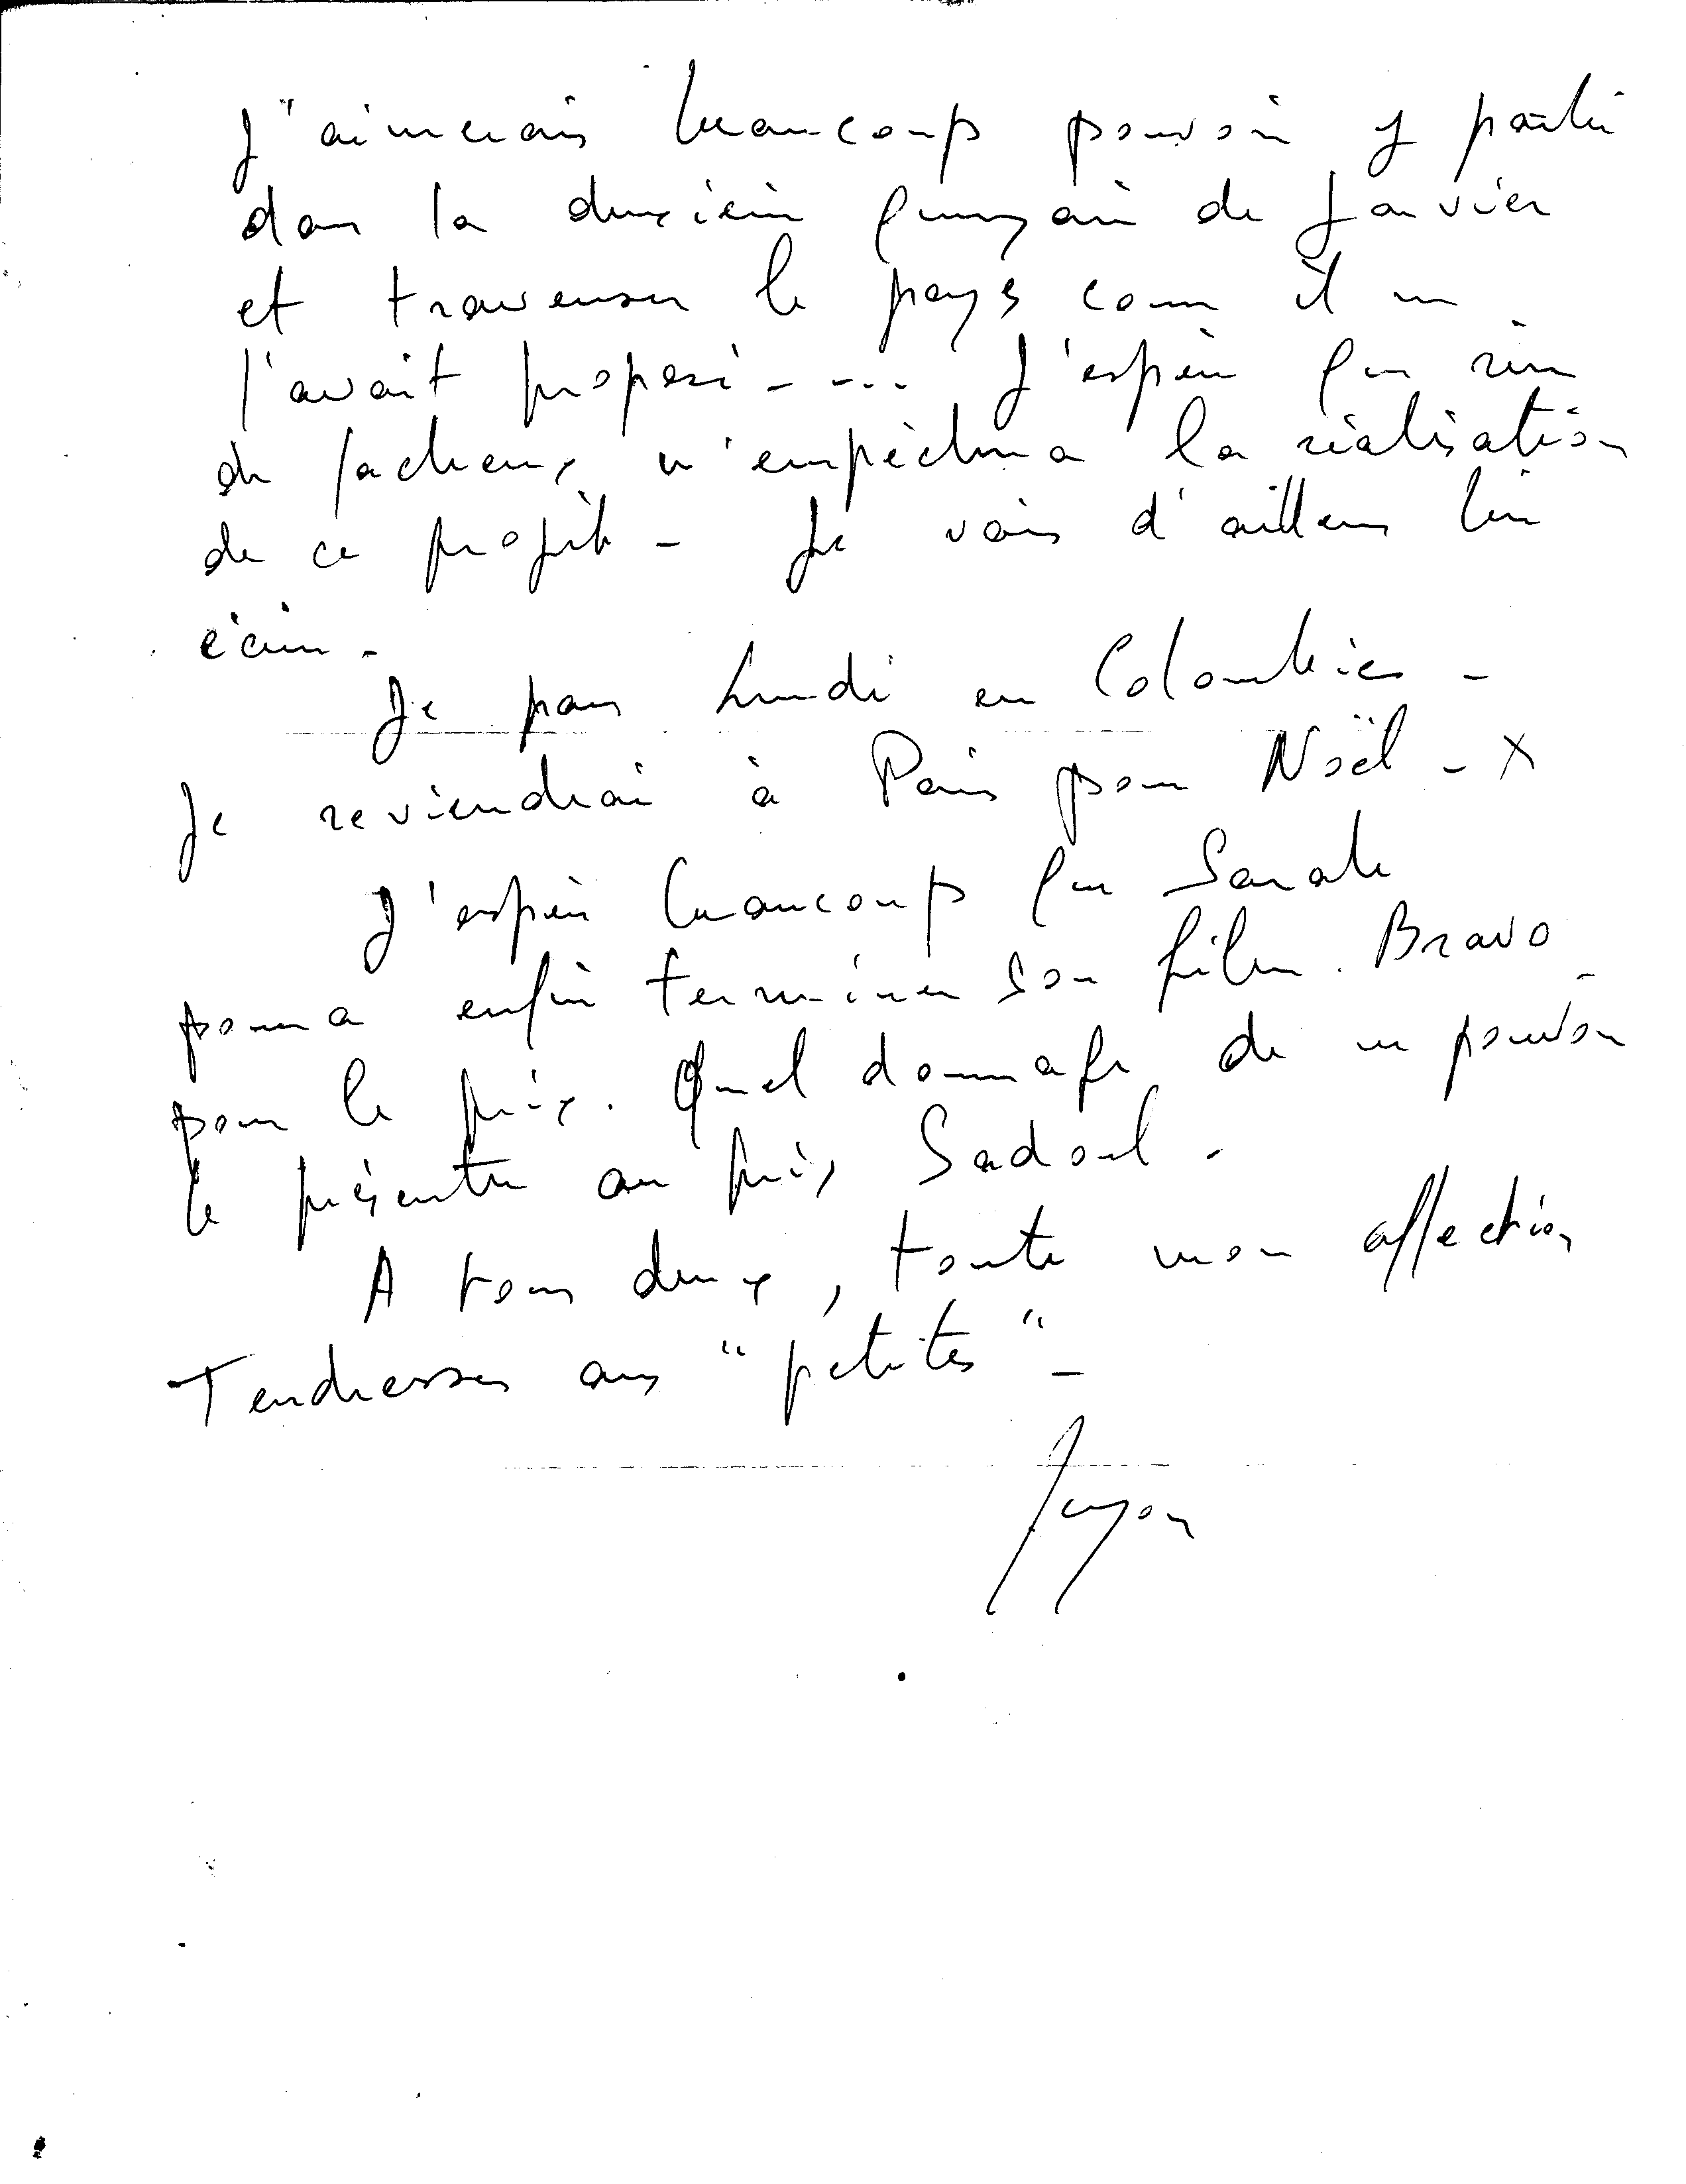 J'aimerais beaucoup pouvoir y partir
dans la deuxième quinzaine de Janvier
et traverser le pays comme il me
l'avait proposé - -... J'espère que rien
de facheux n'empèchera la réalisation
de ce projet - Je vais d'ailleurs lui
écrire -
Je pars Lundi en Colombie -
Je reviendrai à Paris pour Noël - x
J'espère beaucoup que Sarah
pourra enfin terminer son film. Bravo
pour le prix. Quel dommage de ne pouvoir
le présenter au prix Sadoul -
A tous deux, toute mon affection
Tendresses aux "petites" -